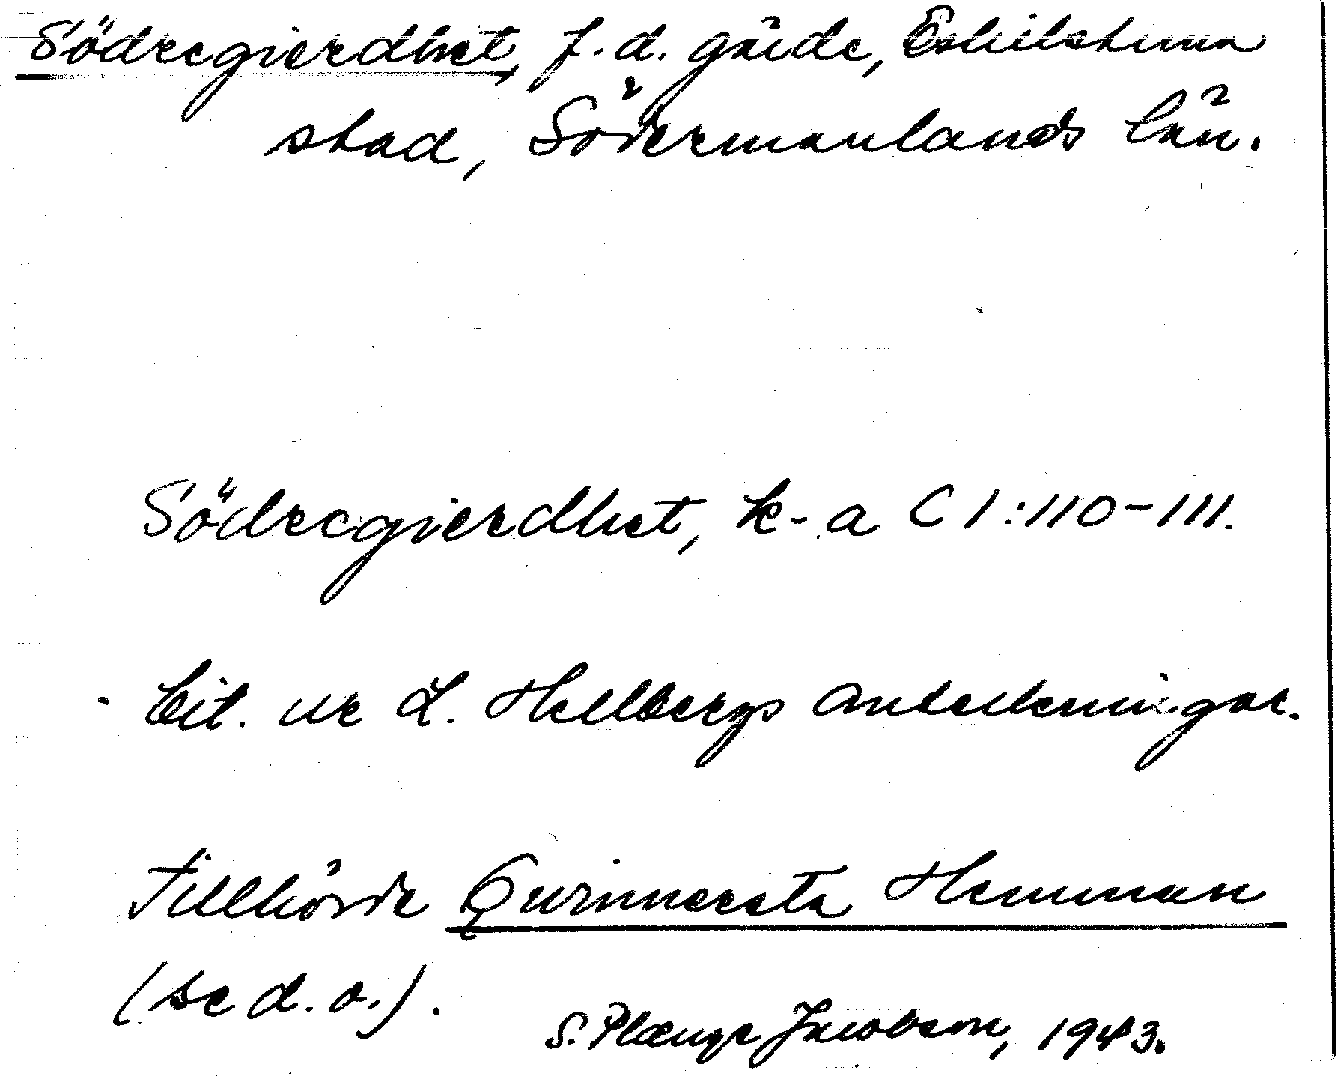 Södregierdhet, f.d. gärde, Eskilstuna
stad, Södermanlands län.
Södregierdhet, k-a C I:110-111.
Cit. ur L. Hellbergs anteckningar.
Tillhörde Qvinnersta Hemman
(se d.o.).
S. Plænge Jacobson, 1943.